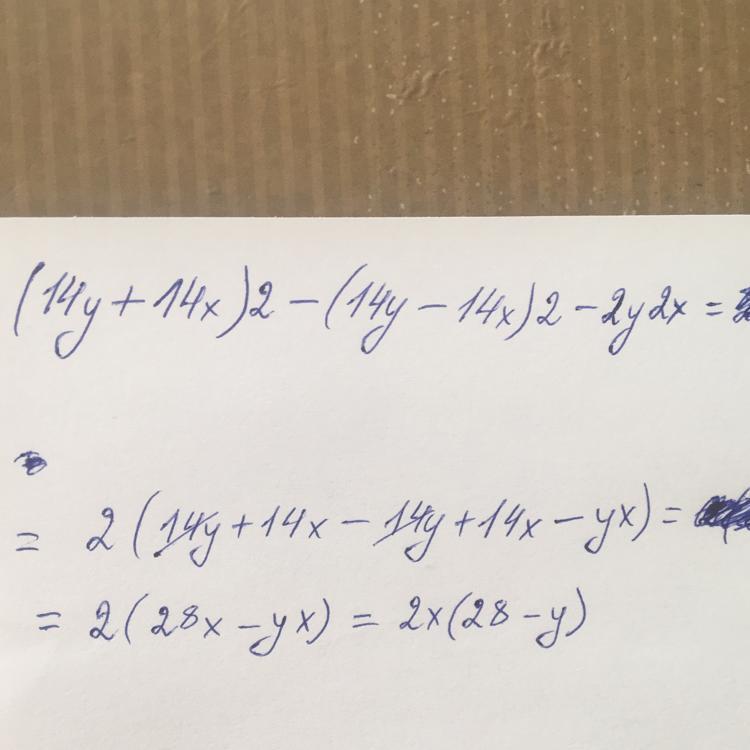 (14y + 14x)2 - (14y - 14x)2 - 2y2x =
= 2(14y + 14x - 14y + 14x - yx) =
= 2(28x - yx) = 2x(28 - y)